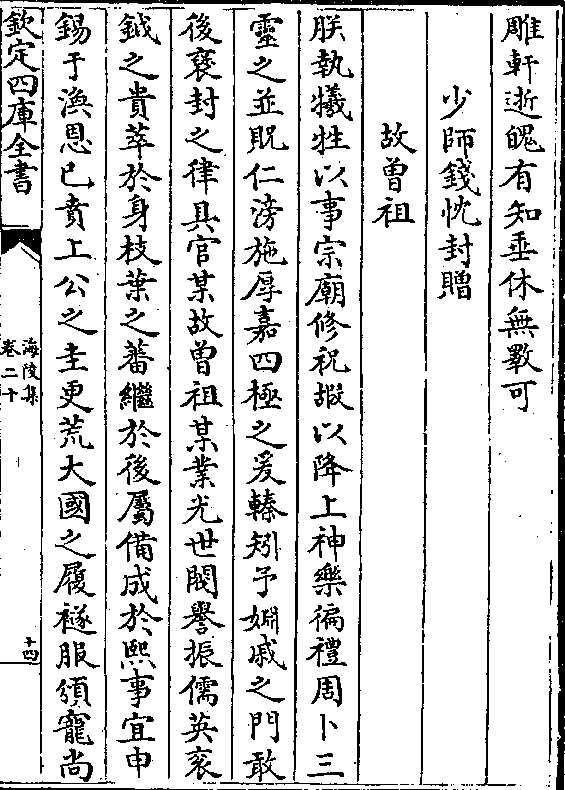 雕軒逝魄有知垂休無斁可
少師錢忱封贈
故曾祖
朕執犧牲以事宗廟修祝嘏以降上神樂徧禮周卜三
靈之並貺仁滂施厚嘉四極之爰臻矧予婣戚之門敢
後褒封之律具官某故曾祖某業光世閥譽振儒英衮
鉞之貴萃於身枝葉之蕃繼於後屬備成於熙事宜申
錫于渙恩已賁上公之圭更荒大國之履襚服頒寵尚
欽定四庫全書
海陵集
卷二十
十四